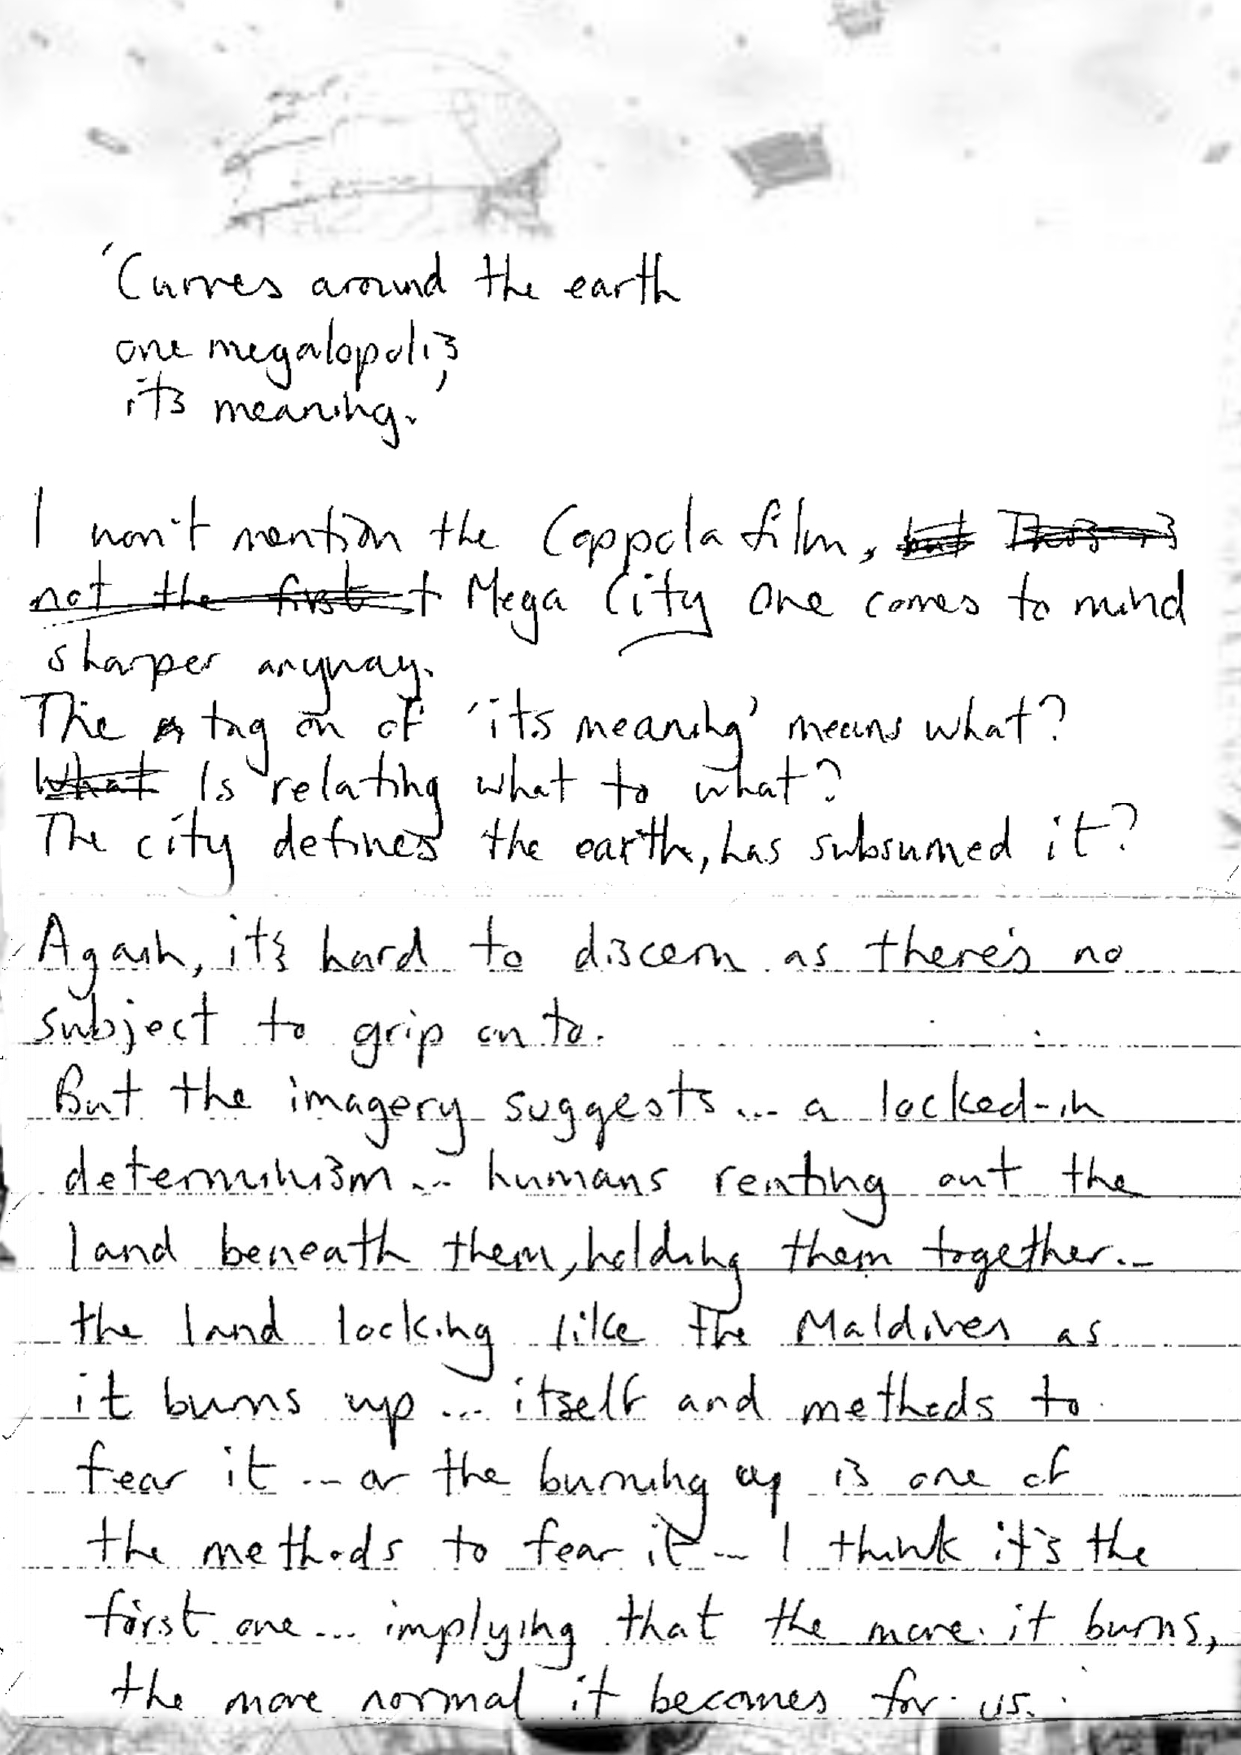 'Curves around the earth
one megalopolis
its meaning.'
I won't mention the Coppola film, but This is
not the first t Mega City One comes to mind
sharper anyway.
The tag on of 'its meaning' means what?
What Is relating what to what?
The city defines the earth, has subsumed it?
Again, its hard to discern as there's no
subject to grip onto.
But the imagery suggests... a locked-in
determinism... humans renting out the
land beneath them, holding them together...
the land looking like the Maldives as
it burns up... itself and methods to
fear it... or the burning up is one of
the methods to fear it... I think it's the
first one... implying that the more it burns,
the more normal it becomes for us.